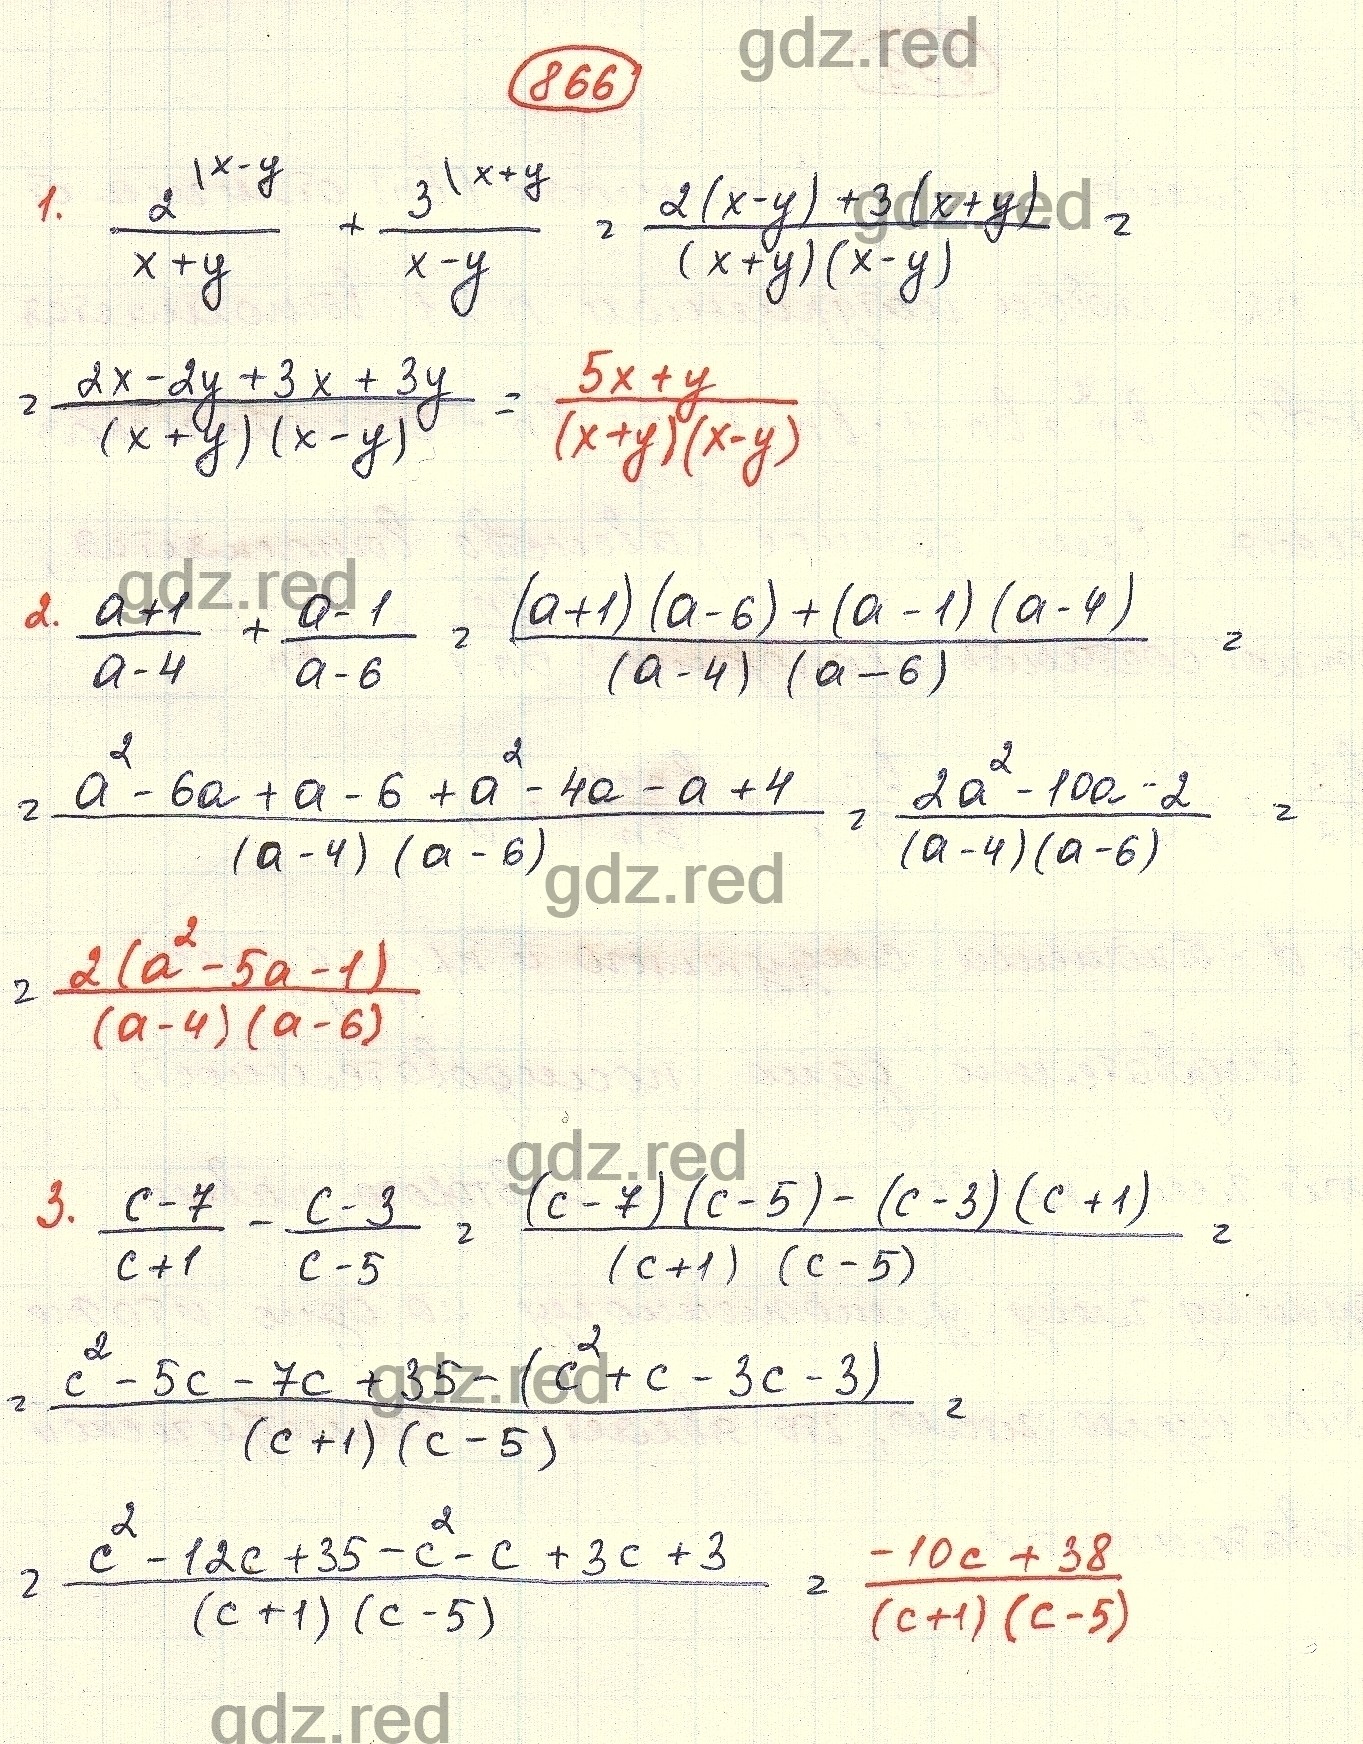 gdz.red
866
1. 2\x-y/(x+y) + 3\x+y/(x-y) = (2(x-y)+3(x+y))/((x+y)(x-y)) =
= (2x-2y+3x+3y)/((x+y)(x-y)) = (5x+y)/((x+y)(x-y))
gdz.red
gdz.red
2. (a+1)/(a-4) + (a-1)/(a-6) = ((a+1)(a-6)+(a-1)(a-4))/((a-4)(a-6)) =
= (a²-6a+a-6+a²-4a-a+4)/((a-4)(a-6)) = (2a²-10a-2)/((a-4)(a-6)) =
gdz.red
= 2(a²-5a-1)/((a-4)(a-6))
gdz.red
3. (c-7)/(c+1) - (c-3)/(c-5) = ((c-7)(c-5)-(c-3)(c+1))/((c+1)(c-5)) =
= (c²-5c-7c+35-(c²+c-3c-3))/((c+1)(c-5)) =
gdz.red
= (c²-12c+35-c²-c+3c+3)/((c+1)(c-5)) = (-10c+38)/((c+1)(c-5))
gdz.red